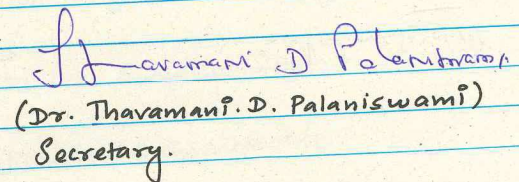 Thavamani D Palaniswami
(Dr. Thavamani. D. Palaniswami)
Secretary.